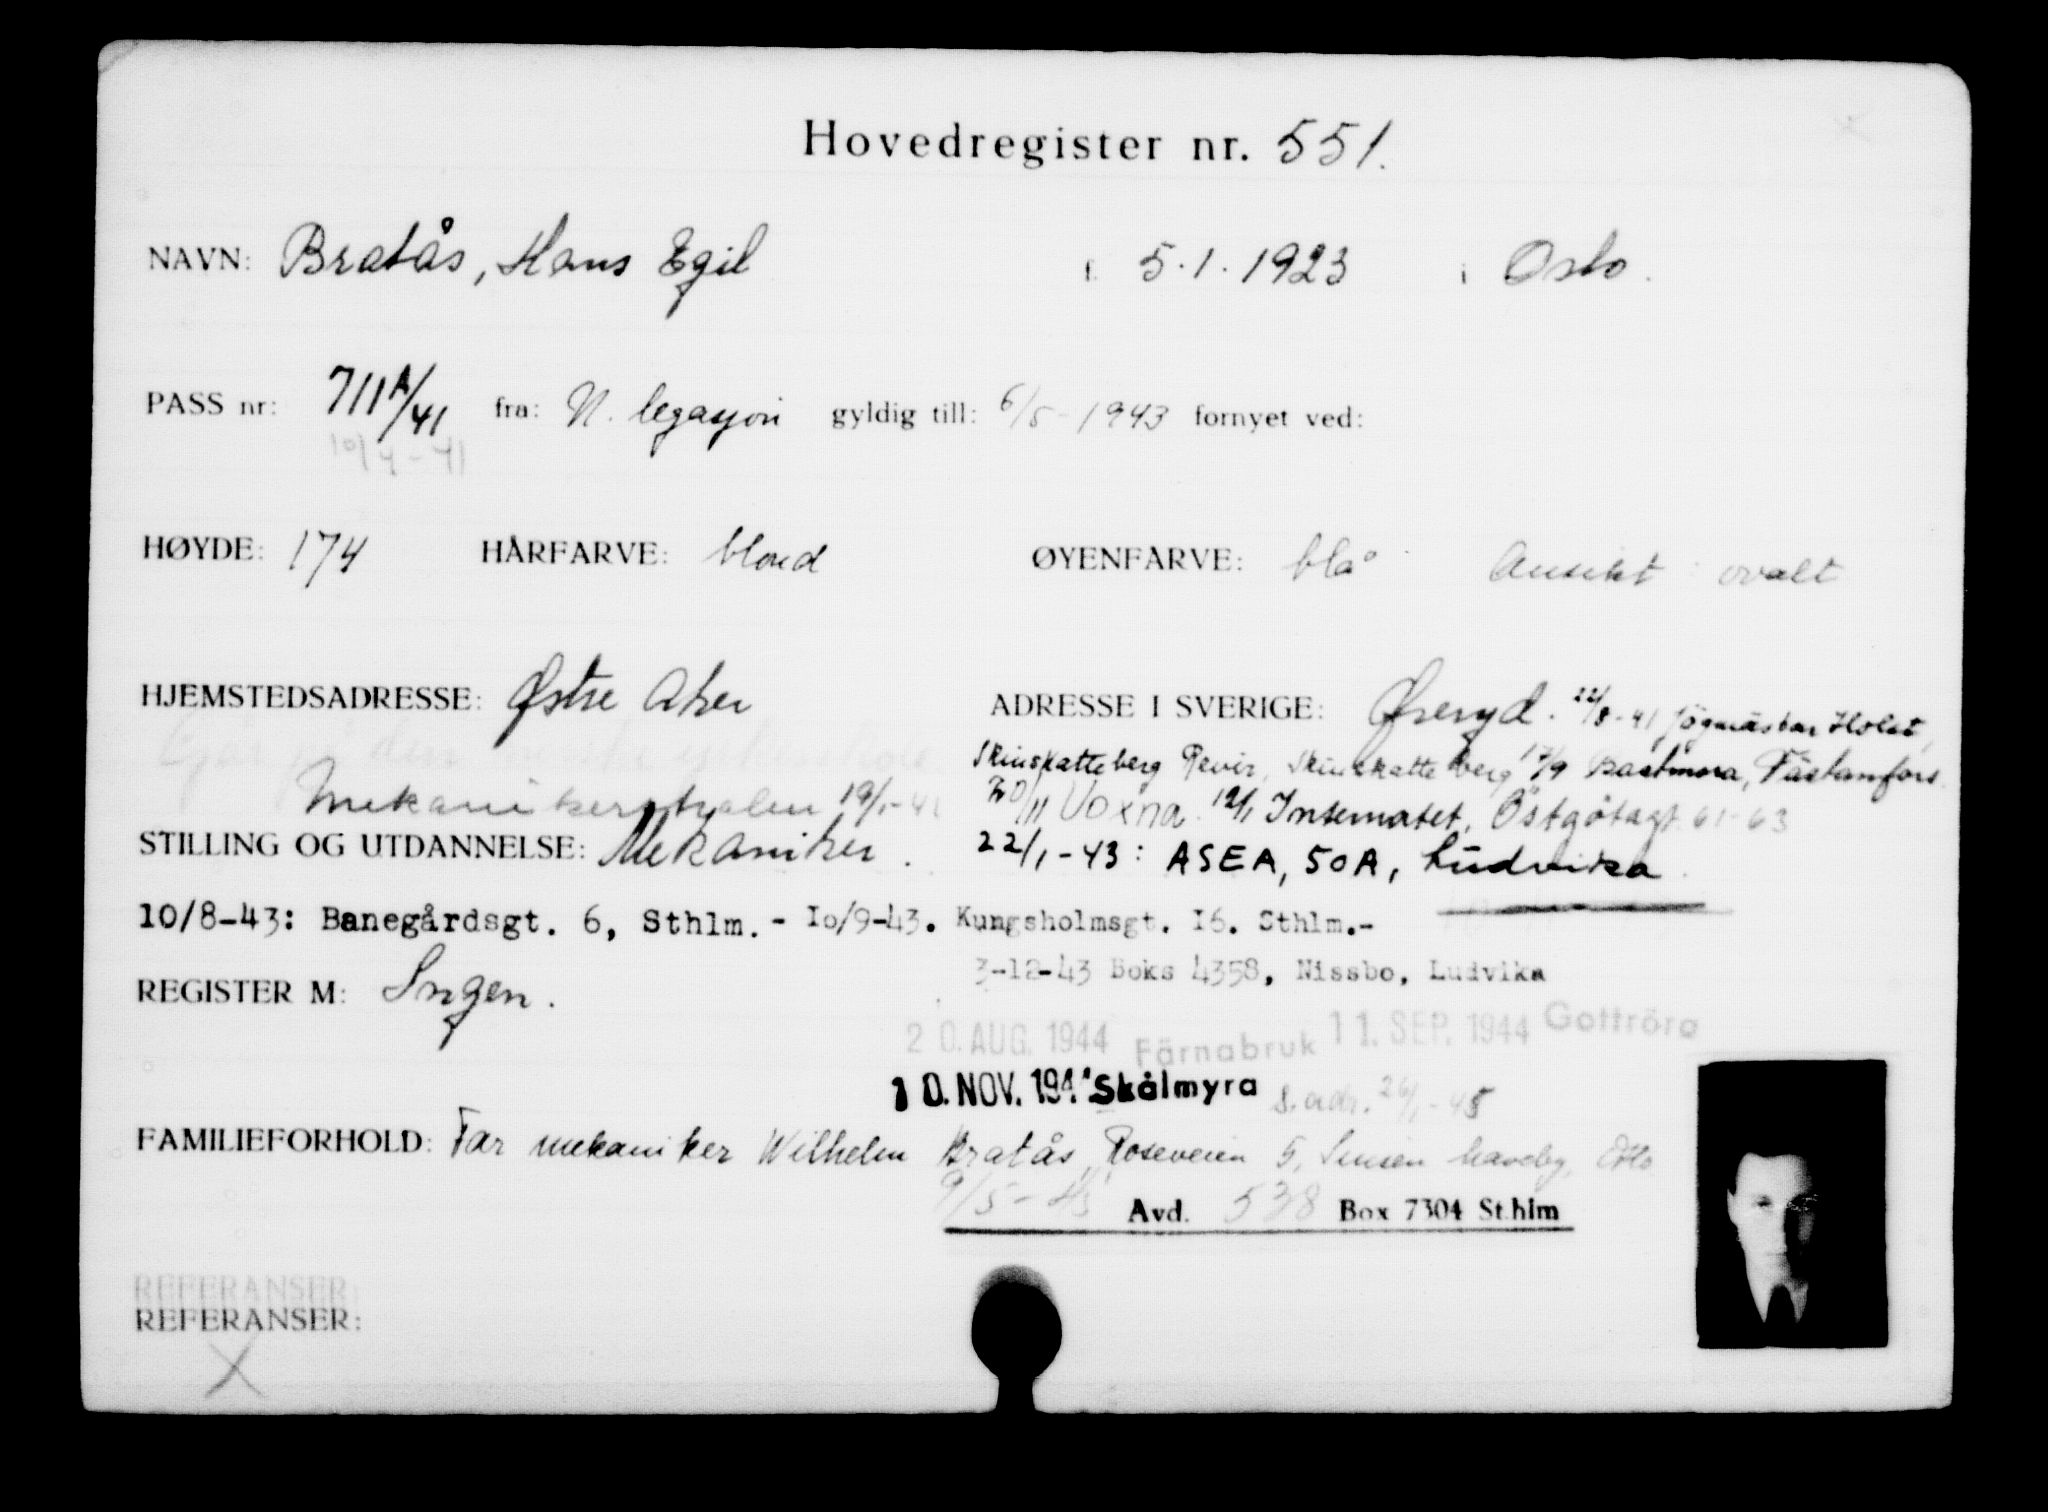 Hovedregister nr. 551.
NAVN: Bratås, Hans Egil f. 5.1.1923 i Oslo.
PASS nr: 711A/41 fra: N. legasjon gyldig till: 6/5-1943 fornyet ved:
10/4-41
HØYDE: 174 HÅRFARVE: blond ØYENFARVE: blå Ansikt: ovalt
HJEMSTEDSADRESSE: Østre Aker ADRESSE I SVERIGE: Øreryd. 22/8-41 Jögmästar Holst,
Skinskatteberg Revir, Skinskatteberg 17/9 Bastmora, Fästamfors.
20/11 Voxna. 12/1 Internatet, Östgötagt. 61-63
19/1-41
STILLING OG UTDANNELSE: Mekaniker. 22/1-43: ASEA, 50A, Ludvika.
10/8-43: Banegårdsgt. 6, Sthlm. - Io/9-43. Kungsholmsgt. I6. Sthlm.-
3-12-43 Boks 4358, Nissbo, Ludvika
REGISTER M: Ingen.
20. AUG. 1944 Färnabruk 11. SEP. 1944 Gottröra
10. NOV. 194 Skålmyra s. adr. 26/1-45
FAMILIEFORHOLD: Far mekaniker Wilhelm Bratås, Roseveien 5, Sinsen haveby, Oslo
9/5-45 Avd. 538 Box 7304 St.hlm
REFERANSER:
REFERANSER:
X